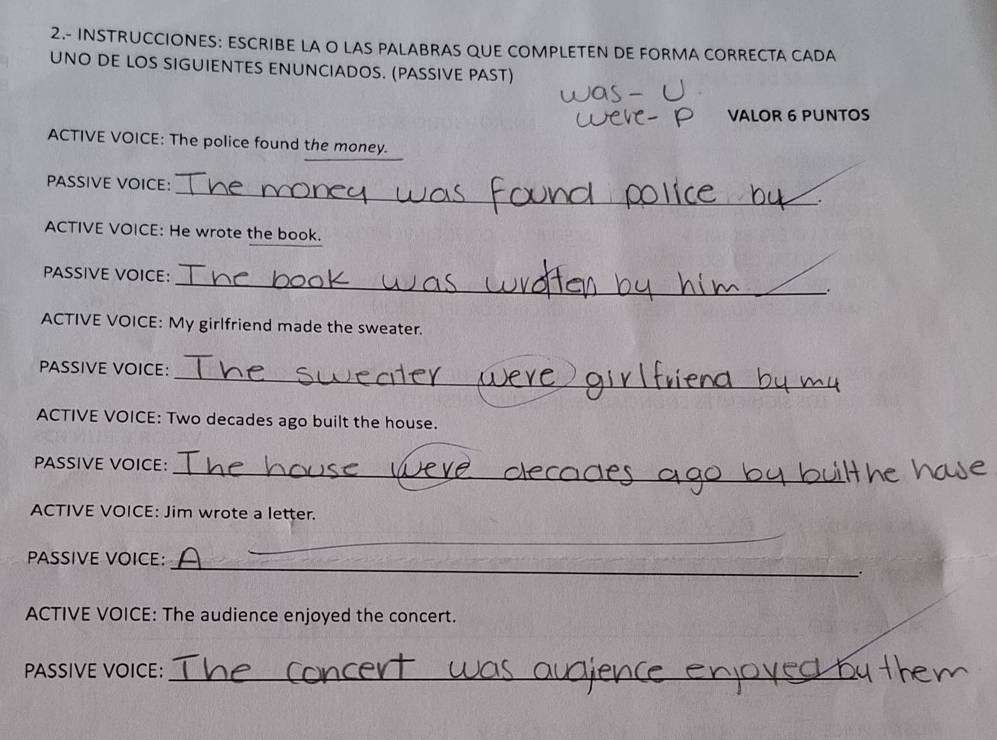 2.- INSTRUCCIONES: ESCRIBE LA O LAS PALABRAS QUE COMPLETEN DE FORMA CORRECTA CADA
UNO DE LOS SIGUIENTES ENUNCIADOS. (PASSIVE PAST)
was - U
were - P
VALOR 6 PUNTOS
ACTIVE VOICE: The police found the money.
PASSIVE VOICE: The money was found police by.
ACTIVE VOICE: He wrote the book.
PASSIVE VOICE: The book was wrotten by him.
ACTIVE VOICE: My girlfriend made the sweater.
PASSIVE VOICE: The sweater were girlfriend by my
ACTIVE VOICE: Two decades ago built the house.
PASSIVE VOICE: The house were decades ago by builthe house
ACTIVE VOICE: Jim wrote a letter.
PASSIVE VOICE: A.
ACTIVE VOICE: The audience enjoyed the concert.
PASSIVE VOICE: The concert was audience enjoyed by them